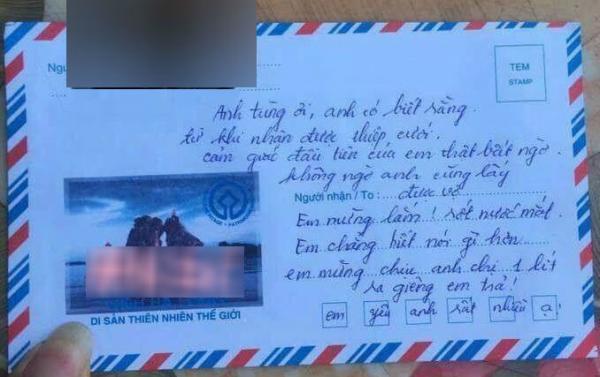 Ngư
TEM
STAMP
Anh tùng ơi, anh có biết rằng.
từ khi nhận được thiệp cưới.
cảm giác đầu tiên của em thật bất ngờ.
không ngờ anh cũng lấy
Người nhận / To : được vợ
Em mừng lắm! rớt nước mắt.
Em chẳng biết nói gì hơn
em mừng chúc anh chị 1 lít
ra giêng em trả!
em yêu anh rất nhiều ạ!
DI SẢN THIÊN NHIÊN THẾ GIỚI